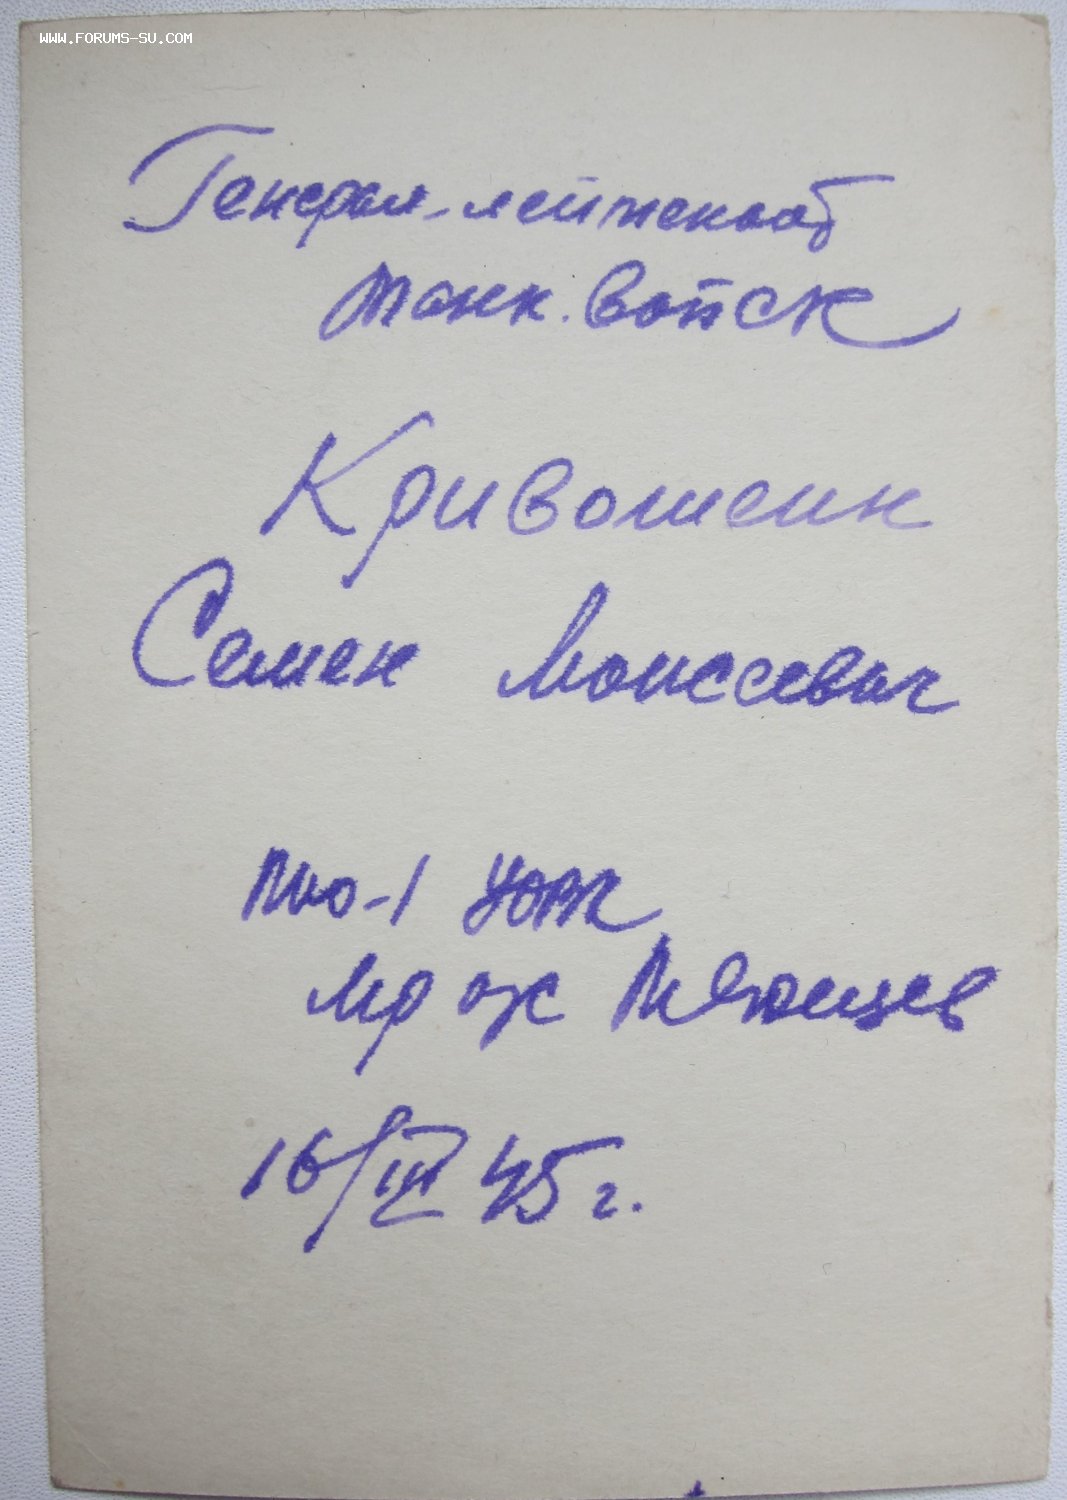 WWW.FORUMS-SU.COM
Генерал-лейтенант
танк. войск
Кривошеин
Семен Моисеевич
16/III 45 г.